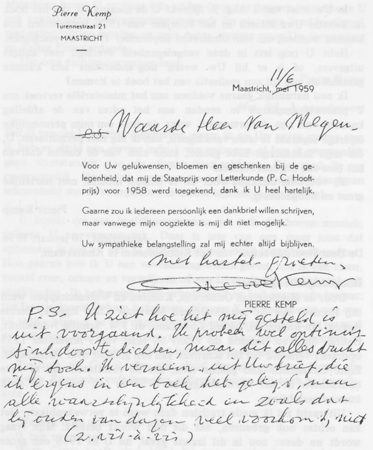 Pierre Kemp
Turennestraat 21
MAASTRICHT
11/6
Maastricht, mei 1959
Waarde Heer Van Megen.
Voor Uw gelukwensen, bloemen en geschenken bij de ge-
legenheid, dat mij de Staatsprijs voor Letterkunde (P. C. Hooft-
prijs) voor 1958 werd toegekend, dank ik U heel hartelijk.
Gaarne zou ik iedereen persoonlijk een dankbrief willen schrijven,
maar vanwege mijn oogziekte is mij dit niet mogelijk.
Uw sympathieke belangstelling zal mij echter altijd bijblijven.
Met hartel. groeten,
Pierre Kemp
PIERRE KEMP
P.S. U ziet hoe het mij gesteld is
uit voorgaand. Ik probeer wel optimis-
tisch door te dichten, maar dit alles drukt
mij toch. Ik verneem uit Uw brief, die
ik ergens in een boek heb gelegd, naar
alle waarschijnlijkheid en zoals dat
bij ouden van dagen veel voorkomt, niet
(z. vis-à-vis)